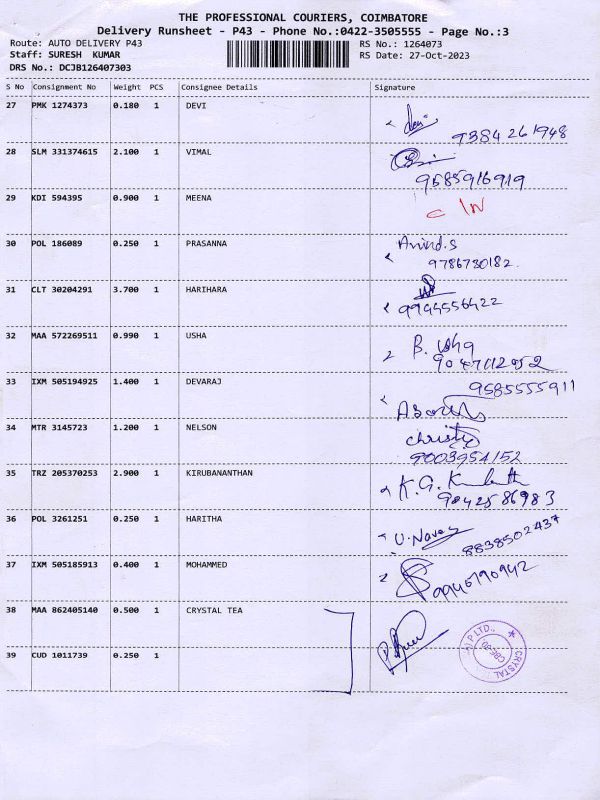 THE PROFESSIONAL COURIERS, COIMBATORE
Delivery Runsheet - P43 - Phone No.:0422-3505555 - Page No.:3
Route: AUTO DELIVERY P43 RS No.: 1264073
Staff: SURESH KUMAR RS Date: 27-Oct-2023
DRS No.: DCJB126407303
S No Consignment No Weight PCS Consignee Details Signature
27 PMK 1274373 0.180 1 DEVI
9384261948
28 SLM 331374615 2.100 1 VIMAL
9585916919
29 KDI 594395 0.900 1 MEENA
C IN
30 POL 186089 0.250 1 PRASANNA Arvind.S
9786730182
31 CLT 30204291 3.700 1 HARIHARA
9944556422
32 MAA 572269511 0.990 1 USHA B. Usha
9047112952
33 IXM 505194925 1.400 1 DEVARAJ 9585555911
34 MTR 3145723 1.200 1 NELSON Christy
9003954152
35 TRZ 205370253 2.900 1 KIRUBANANTHAN K.G.
9042586983
36 POL 3261251 0.250 1 HARITHA U.Naveen
8838502437
37 IXM 505185913 0.400 1 MOHAMMED
9945790942
38 MAA 862405140 0.500 1 CRYSTAL TEA
39 CUD 1011739 0.250 1
CRYSTAL
P LTD.,